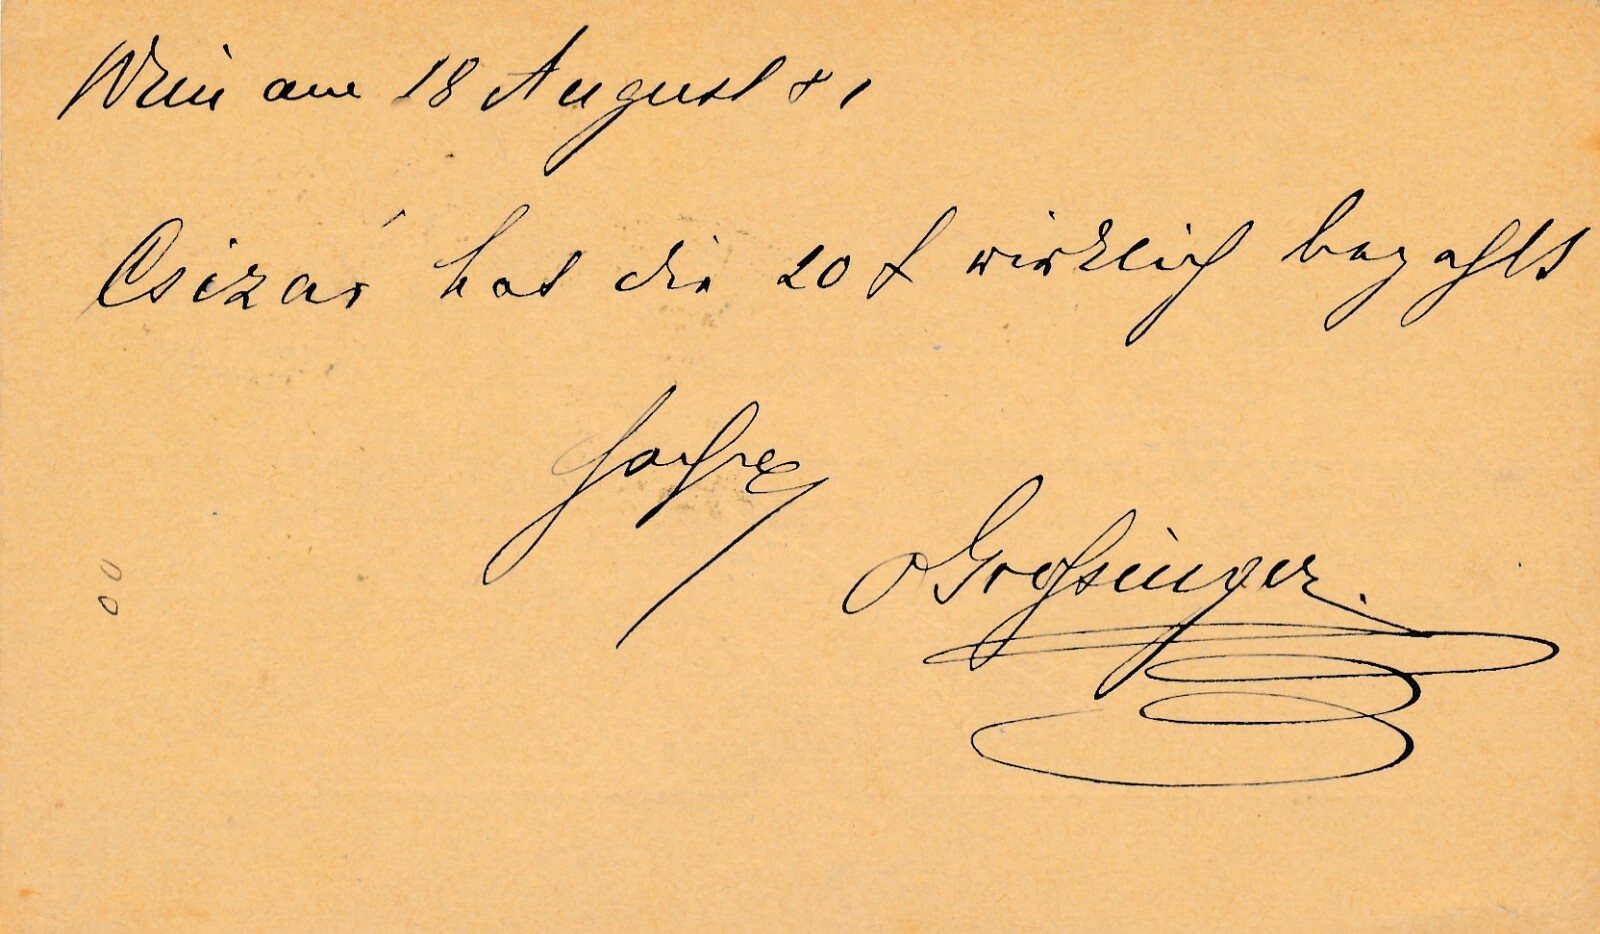 Wien am 18 August 81
Csizar hat die 20 f wirklich bezahlt
Grossinger.